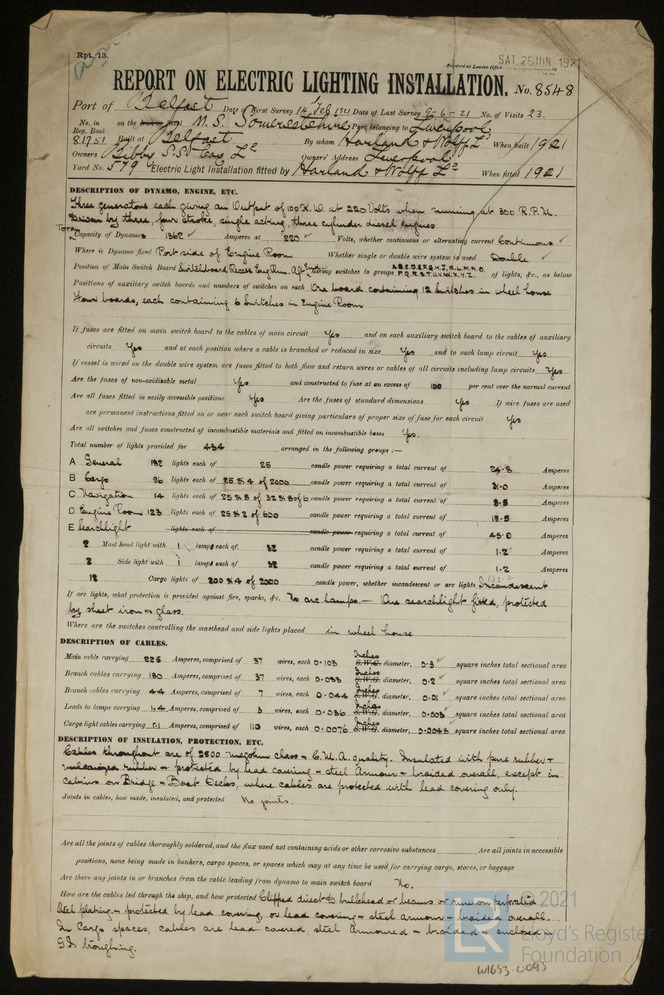 Rpt. 13.
Received at London Office SAT. 25 JUN. 1921
REPORT ON ELECTRIC LIGHTING INSTALLATION. No. 8548
Port of Belfast Date of First Survey 14 Feb 1921 Date of Last Survey 9-6-21 No. of Visits 23.
No. in on the M.S. Somersetshire Port belonging to Liverpool
Reg. Book 81751 Built at Belfast By whom Harland & Wolff Ld When built 1921
Owners Bibby S.S. Co Ld Owners' Address Liverpool
Yard No. 579 Electric Light Installation fitted by Harland & Wolff Ld When fitted 1921
DESCRIPTION OF DYNAMO, ENGINE, ETC.
Three generators each giving an Output of 100 K.W. at 220 Volts when running at 300 R.P.M.
Driven by three, four stroke, single acting, three cylinder diesel engines
Total Capacity of Dynamos 1362 Amperes at 220 Volts, whether continuous or alternating current Continuous
Where is Dynamo fixed Port side of Engine Room Whether single or double wire system is used Double
Position of Main Switch Board Switchboard Recess Eng Rm. Aft End having switches to groups A.B.C.D.E.F.G.H.J.K.L.M.N.O. of lights, &c., as below
P.Q.R.S.T.U.V.W.X.Y.Z.
Positions of auxiliary switch boards and numbers of switches on each One board containing 12 switches in wheel house
Four boards, each containing 6 switches in Engine Room
If fuses are fitted on main switch board to the cables of main circuit Yes and on each auxiliary switch board to the cables of auxiliary
circuits Yes and at each position where a cable is branched or reduced in size Yes and to each lamp circuit Yes
If vessel is wired on the double wire system are fuses fitted to both flow and return wires or cables of all circuits including lamp circuits Yes.
Are the fuses of non-oxidizable metal Yes and constructed to fuse at an excess of 100 per cent over the normal current
Are all fuses fitted in easily accessible positions Yes Are the fuses of standard dimensions Yes If wire fuses are used
are permanent instructions fitted on or near each switch board giving particulars of proper size of fuse for each circuit Yes
Are all switches and fuses constructed of incombustible materials and fitted on incombustible bases Yes.
Total number of lights provided for 434 arranged in the following groups :—
A General 182 lights each of 25 candle power requiring a total current of 24.8 Amperes
B Cargo 96 lights each of 25 & 4 of 2000 candle power requiring a total current of 21.0 Amperes
C Navigation 14 lights each of 25 & 5 of 32 & 8 of 6 candle power requiring a total current of Amperes
D Engine Room 123 lights each of 25 & 2 of 600 candle power requiring a total current of 19.5 Amperes
E Searchlight lights each of candle power requiring a total current of 45.0 Amperes
2 Mast head light with 1 lamps each of 32 candle power requiring a total current of 1.2 Amperes
2 Side light with 1 lamps each of 32 candle power requiring a total current of 1.2 Amperes
12 Cargo lights of 200 & 4 of 2000 candle power, whether incandescent or arc lights Incandescent
If arc lights, what protection is provided against fire, sparks, &c. No arc lamps.— One searchlight fitted, protected
by sheet iron & glass.
Where are the switches controlling the masthead and side lights placed in wheel house
DESCRIPTION OF CABLES.
Main cable carrying 225 Amperes, comprised of 37 wires, each 0.103 Inches S.W.G. diameter, 0.3 square inches total sectional area
Branch cables carrying 130 Amperes, comprised of 37 wires, each 0.083 Inches S.W.G. diameter, 0.2 square inches total sectional area
Branch cables carrying 44 Amperes, comprised of 7 wires, each 0.044 Inches S.W.G. diameter, 0.01 square inches total sectional area
Leads to lamps carrying 1.4 Amperes, comprised of 3 wires, each 0.036 Inches S.W.G. diameter, 0.003 square inches total sectional area
Cargo light cables carrying Amperes, comprised of 110 wires, each 0.0076 Inches S.W.G. diameter, 0.0048 square inches total sectional area
DESCRIPTION OF INSULATION, PROTECTION, ETC.
Cables throughout are of 2500 megohm class & C.M.A. quality. Insulated with pure rubber &
vulcanized rubber & protected by lead covering & steel Armour & braided overall, except in
cabins on Bridge & Boat Decks, where cables are protected with lead covering only.
Joints in cables, how made, insulated, and protected No joints.
Are all the joints of cables thoroughly soldered, and the flux used not containing acids or other corrosive substances Are all joints in accessible
positions, none being made in bunkers, cargo spaces, or spaces which may at any time be used for carrying cargo, stores, or baggage
Are there any joints in or branches from the cable leading from dynamo to main switch board No.
How are the cables led through the ship, and how protected Clipped direct to bulkhead or beams or run on perforated
steel plating & protected by lead covering, or lead covering & steel armour & braided overall.
In Cargo spaces, cables are lead covered, steel Armoured & braided & enclosed in
G.I. troughing.
© 2021
Lloyd's Register
Foundation
W1653-0093